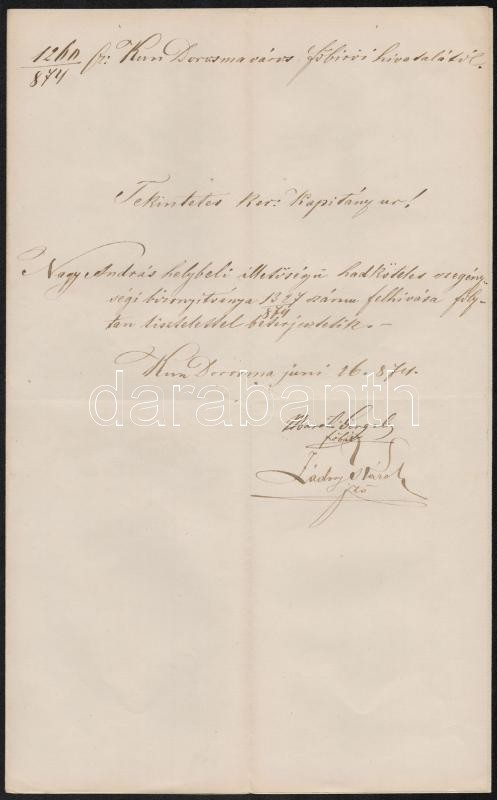 1260/874 sz: Kun Dorosma város főbirói hivatalától.
Tekintetes Ker: Kapitány ur!
Nagy András helybeli illetőségü hadköteles szegény-
ségi bizonyitványa 1327/874 számu felhivása foly-
tán tisztelettel béterjesztetik. –
Kun Dorosma juni 26. 874.
Gergely
főbiró
darabanth